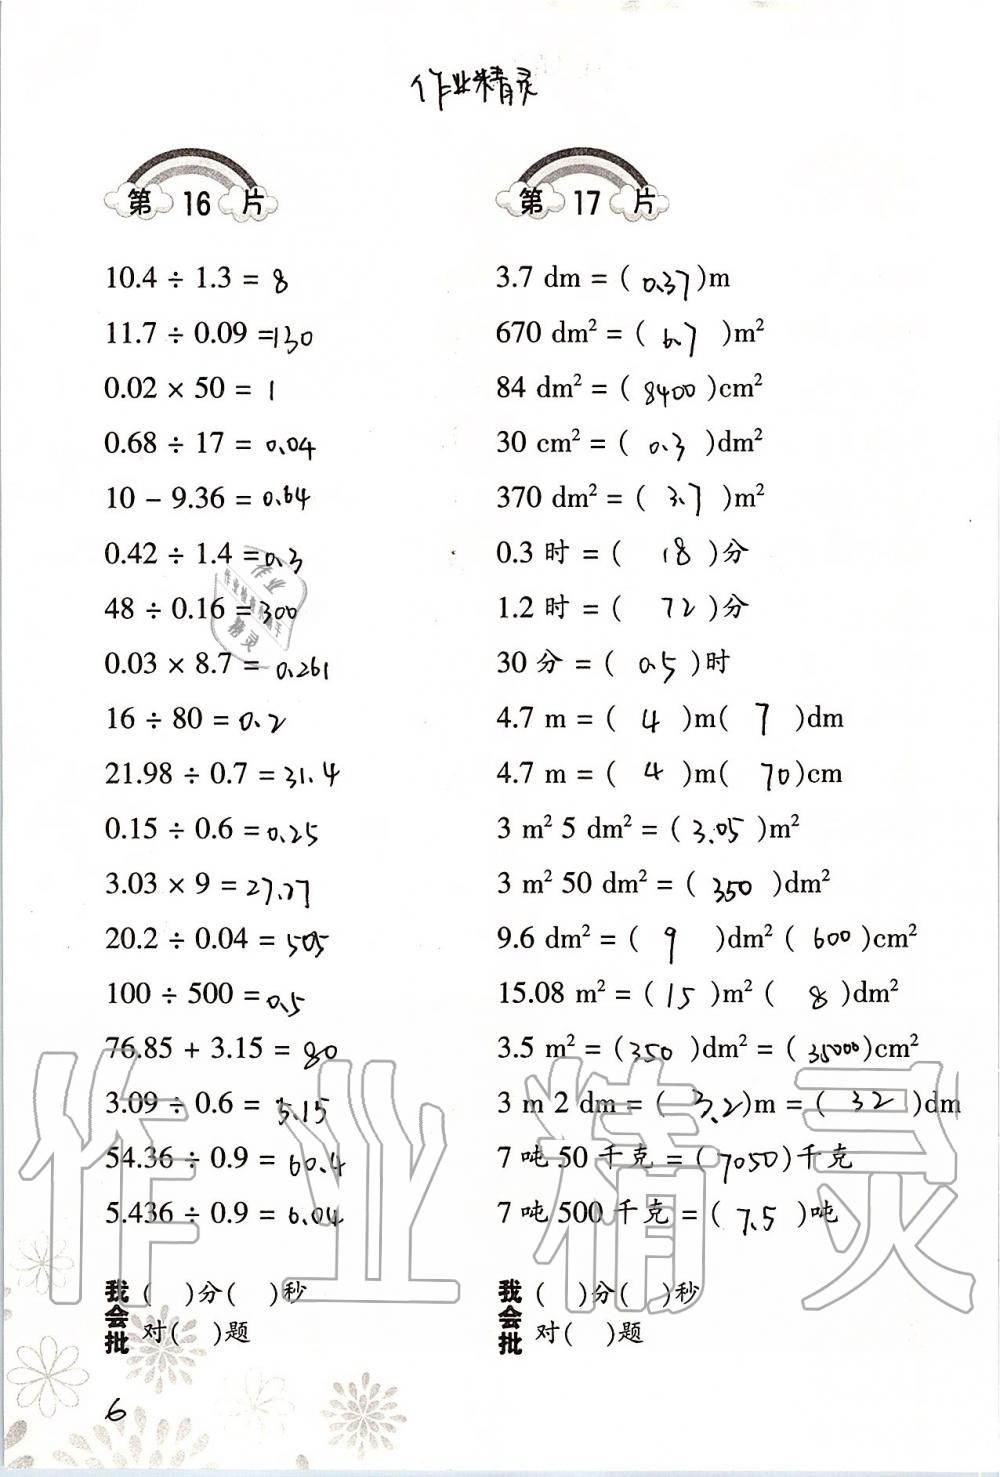 作业精灵
第 16 片
10.4 ÷ 1.3 = 8
11.7 ÷ 0.09 = 130
0.02 × 50 = 1
0.68 ÷ 17 = 0.04
10 - 9.36 = 0.64
0.42 ÷ 1.4 = 0.3
48 ÷ 0.16 = 300
0.03 × 8.7 = 0.261
16 ÷ 80 = 0.2
21.98 ÷ 0.7 = 31.4
0.15 ÷ 0.6 = 0.25
3.03 × 9 = 27.27
20.2 ÷ 0.04 = 505
100 ÷ 500 = 0.5
76.85 + 3.15 = 80
3.09 ÷ 0.6 = 5.15
54.36 ÷ 0.9 = 60.4
5.436 ÷ 0.9 = 6.04
我会批
( )分( )秒
对( )题
第 17 片
3.7 dm = ( 0.37 )m
670 dm² = ( 6.7 )m²
84 dm² = ( 8400 )cm²
30 cm² = ( 0.3 )dm²
370 dm² = ( 3.7 )m²
0.3 时 = ( 18 )分
1.2 时 = ( 72 )分
30 分 = ( 0.5 )时
4.7 m = ( 4 )m( 7 )dm
4.7 m = ( 4 )m( 70 )cm
3 m² 5 dm² = ( 3.05 )m²
3 m² 50 dm² = ( 350 )dm²
9.6 dm² = ( 9 )dm² ( 600 )cm²
15.08 m² = ( 15 )m² ( 8 )dm²
3.5 m² = ( 350 )dm² = ( 35000 )cm²
3 m 2 dm = ( 3.2 )m = ( 32 )dm
7 吨 50 千克 = ( 7050 )千克
7 吨 500 千克 = ( 7.5 )吨
我会批
( )分( )秒
对( )题
6
作业精灵